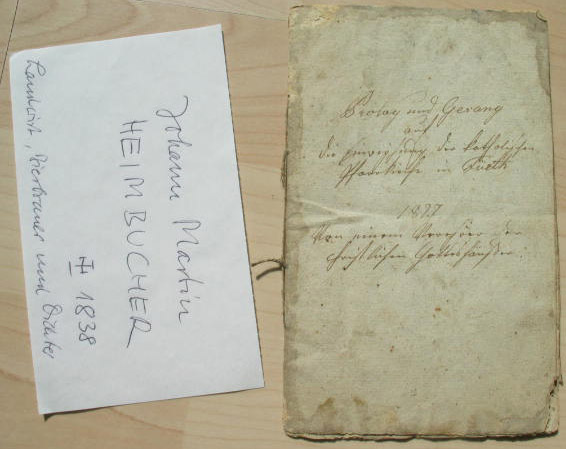 Johann Martin
HEIMBUCHER
† 1838
Landwirt, Bierbrauer und Dichter
Prolog und Gesang
auf
die Einweihung der katholischen
Pfarrkirche in Fürth
18
Von einem Verehrer der
christlichen Gotteshäuser.